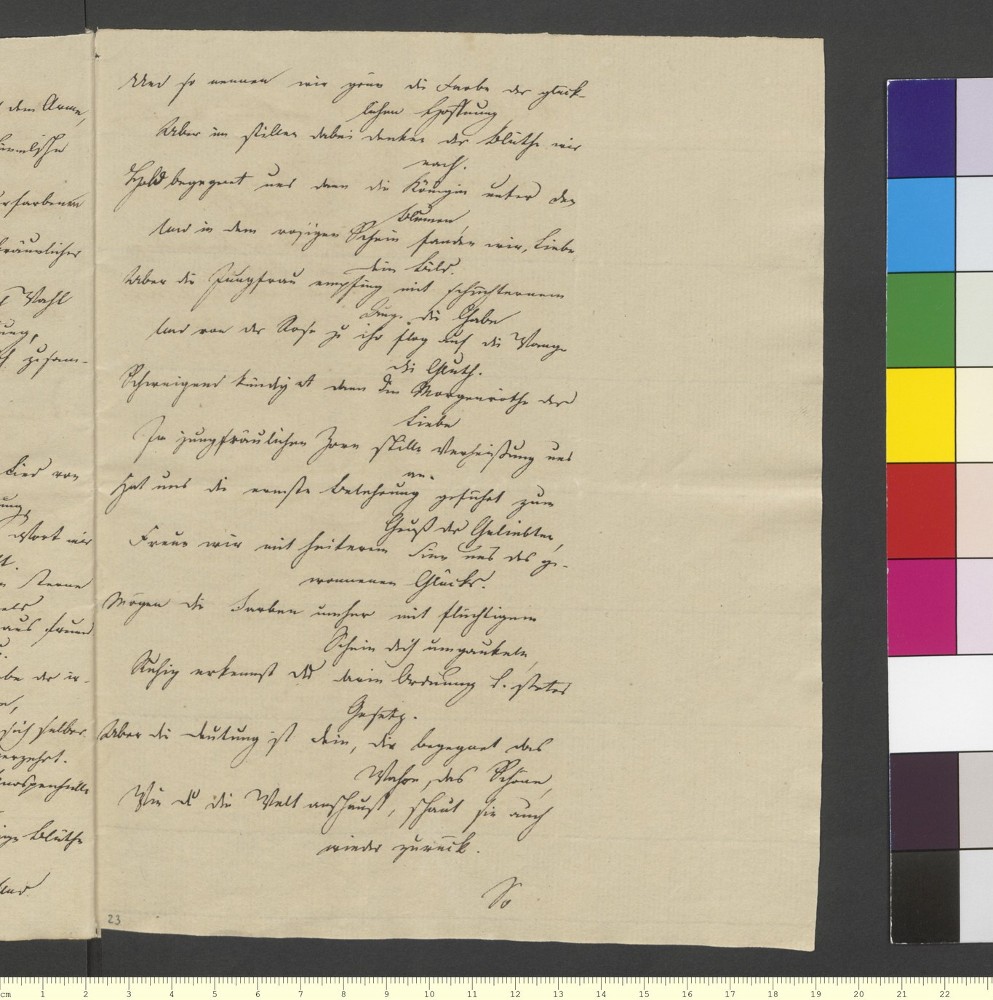 Und so nennen wir grün die Farbe der glück-
lichen Hoffnung
Aber im stillen dabei denken der Blüthe wir
nach.
Hold begegnet uns dann die Königin unter den
Blumen
Und in dem rosigen Schein fanden wir, Liebe
dein Bild.
Aber die Jungfrau empfing mit schüchternem
Aug. die Gabe
Und von der Rose zu ihr flog auf die Wange
die Gluth.
Schweigend kündigt dann die Morgenröthe der
Liebe
In jungfräulichen Zorn stille Verheißung uns
an.
Hat uns die ernste Belehrung geführt zum
Gruß der Geliebten,
Freun wir mit heiterem Sinn uns des ge-
wonnenen Glücks.
Mögen die Farben umher mit flüchtigem
Schein dich umgaukeln,
Ruhig erkennst du darin Ordnung u. stetes
Gesetz.
Aber die Deutung ist dein, dir begegnet das
Wahre, das Schöne,
Wie du die Welt anschaust, schaut sie auch
wieder zurück.
So
23
dem Arme,
Wahl
zusam-
Lied von
Wort
Sterne
aus
sich selber
verzehrt.
Knospenhülle
Blüthe
Und